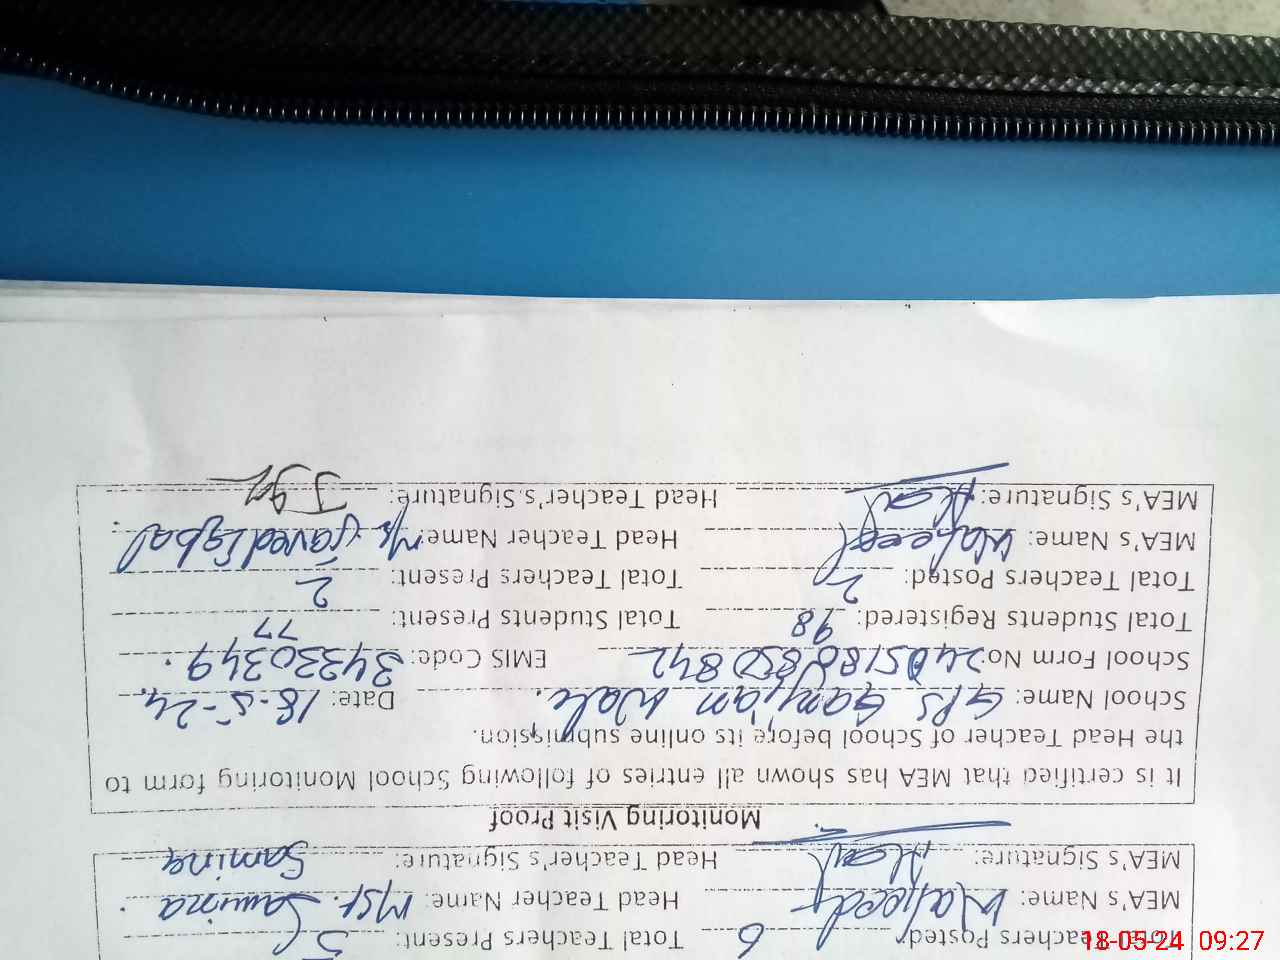 Total Teachers Posted: 6 Total Teachers Present: 5
MEA's Name: Waheed Head Teacher Name: Mst. Samina
MEA's Signature: Head Teacher's Signature: Samina
Monitoring Visit Proof
It is certified that MEA has shown all entries of following School Monitoring form to
the Head Teacher of School before its online submission.
School Name: GPS Ganjian Wale. Date: 18-5-24.
School Form No: 2405180850842 EMIS Code: 34330349.
Total Students Registered: 98 Total Students Present: 77
Total Teachers Posted: 2 Total Teachers Present: 2
MEA's Name: Waheed Head Teacher Name: Mr. Javed Iqbal
MEA's Signature: Head Teacher's Signature:
18-05-24 09:27